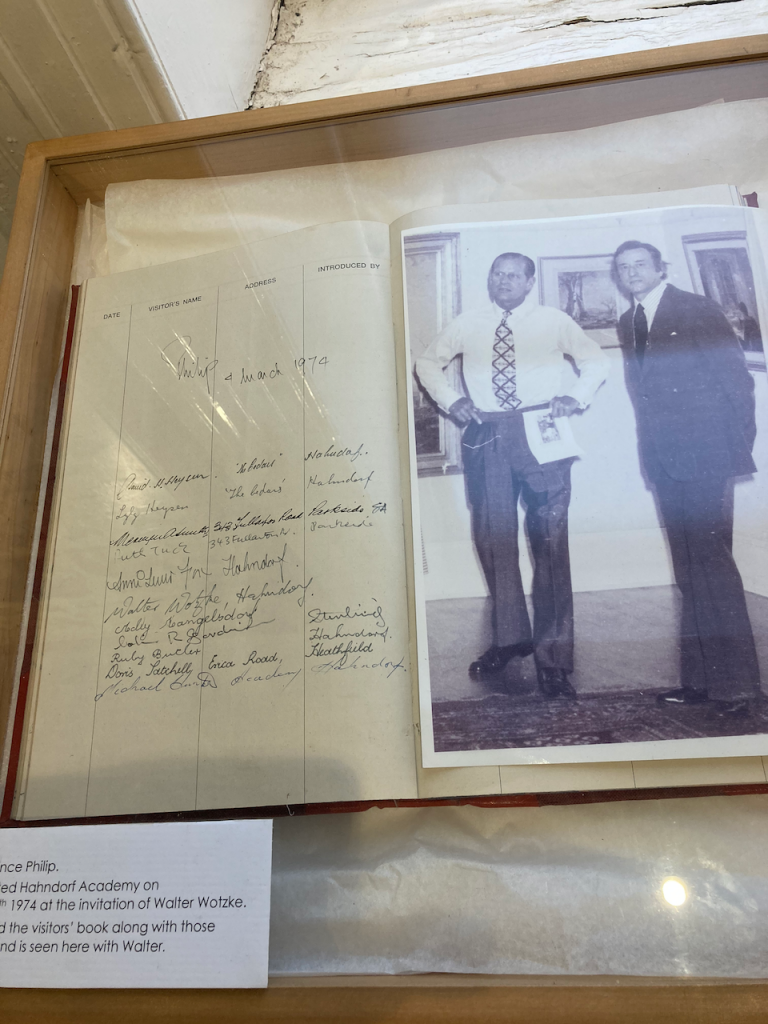 DATE VISITOR'S NAME ADDRESS INTRODUCED BY
Philip 4 March 1974
David H. Heysen. "The Cedars" Hahndorf.
Lyly Heysen "The Cedars" Hahndorf
343 Fullarton Road Parkside SA
Ruth Tuck 343 Fullarton Parkside
Fox Hahndorf.
Walter Wotzke Hahndorf.
R Stirling
Ruby Butler Hahndorf.
Doris Satchell, Erica Road, Heathfield
Michael Academy Hahndorf.
nce Philip.
ed Hahndorf Academy on
th 1974 at the invitation of Walter Wotzke.
d the visitors' book along with those
nd is seen here with Walter.